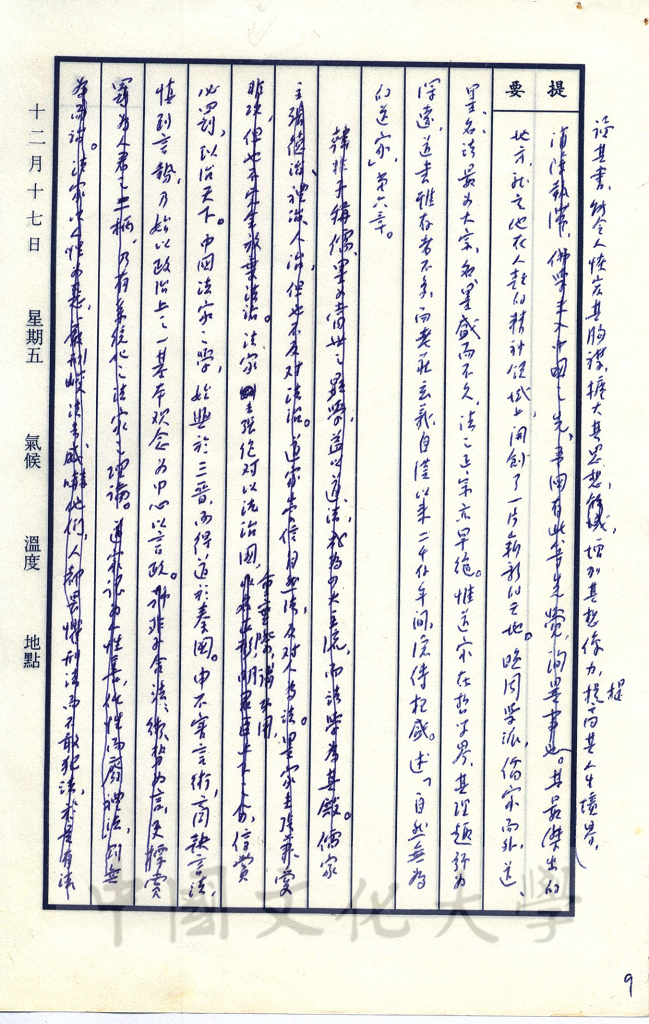 讀其書，能令人恢宏其胸襟，擴大其思想領域，增加其想像力，提高其人生境界，
提
提要
清除報障，佛學未入中國之先，吾國有此等先覺，洵異事也。其最傑出的
地方，就是他在人類的精神領域上開創了一片嶄新的天地。晚周學派，儒家而外，道、
墨、名、法最為大宗，名墨盛而不久，法之正宗亦早絕。惟道家在哲學界，其理趣極為
深遠，道書雖存者不多，而老莊玄義，自漢以來二千餘年間，流傳極盛。述「自然無為
的道家」第六章。
韓非子稱儒、墨為當世之顯學，益以道、法，或為四大主流，而法學為其殿。儒家
主張德治、禮治、人治，但也不反對法治。道家崇信自然法，反對人為法。墨家主張兼愛
非攻，但也不完全放棄法治。法家主張絕對以法治國，
重實際，講求實用，
信賞
必罰，以治天下。中國法家之學，始興於三晉，而得道於秦國。申不害言術，商鞅言法，
慎到言勢，乃始以政治上之一基本觀念為中心以言政。韓非子合法、術、勢為言，更標賞
罰為人君之二柄，乃有系統化之法家之理論。道家認為人性善，化性而廢禮法，則無
為而治。法家以人性為惡，嚴刑峻法去威嚇他們，人都畏懼刑法而不敢犯法，
十二月十七日 星期五 氣候 溫度 地點
中國文化大學
9